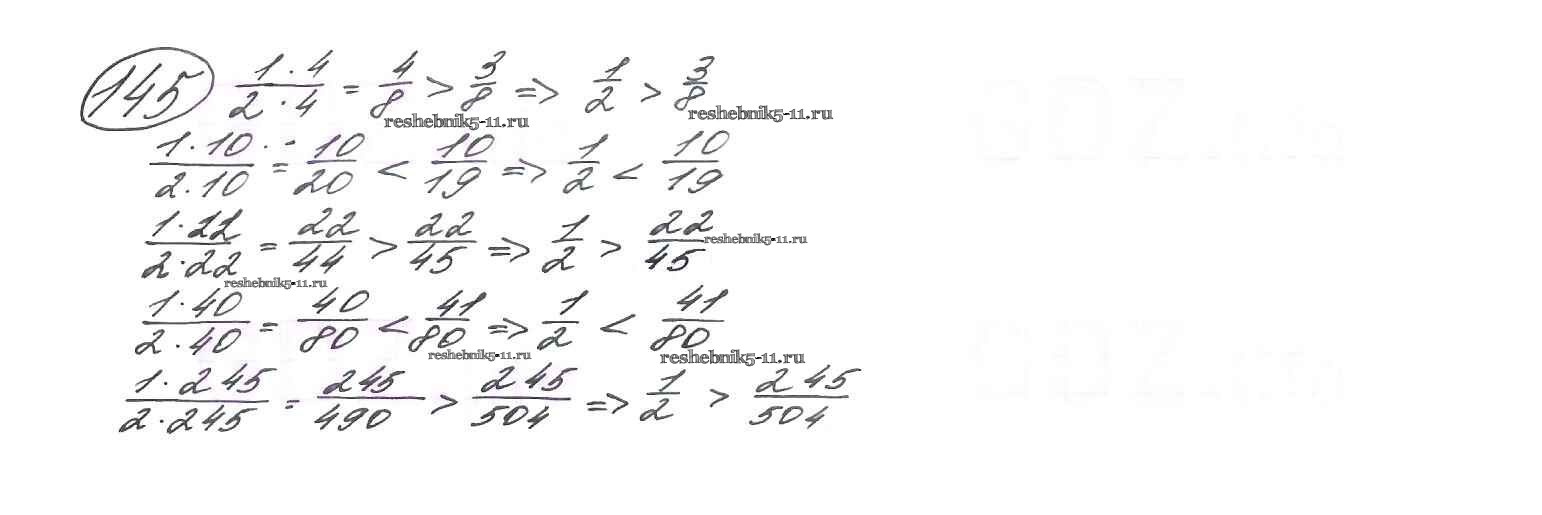 145 1·4/2·4 = 4/8 > 3/8 => 1/2 > 3/8
reshebnik5-11.ru reshebnik5-11.ru
1·10/2·10 = 10/20 < 10/19 => 1/2 < 10/19
1·22/2·22 = 22/44 > 22/45 => 1/2 > 22/45
reshebnik5-11.ru
reshebnik5-11.ru
1·40/2·40 = 40/80 < 41/80 => 1/2 < 41/80
reshebnik5-11.ru reshebnik5-11.ru
1·245/2·245 = 245/490 > 245/504 => 1/2 > 245/504